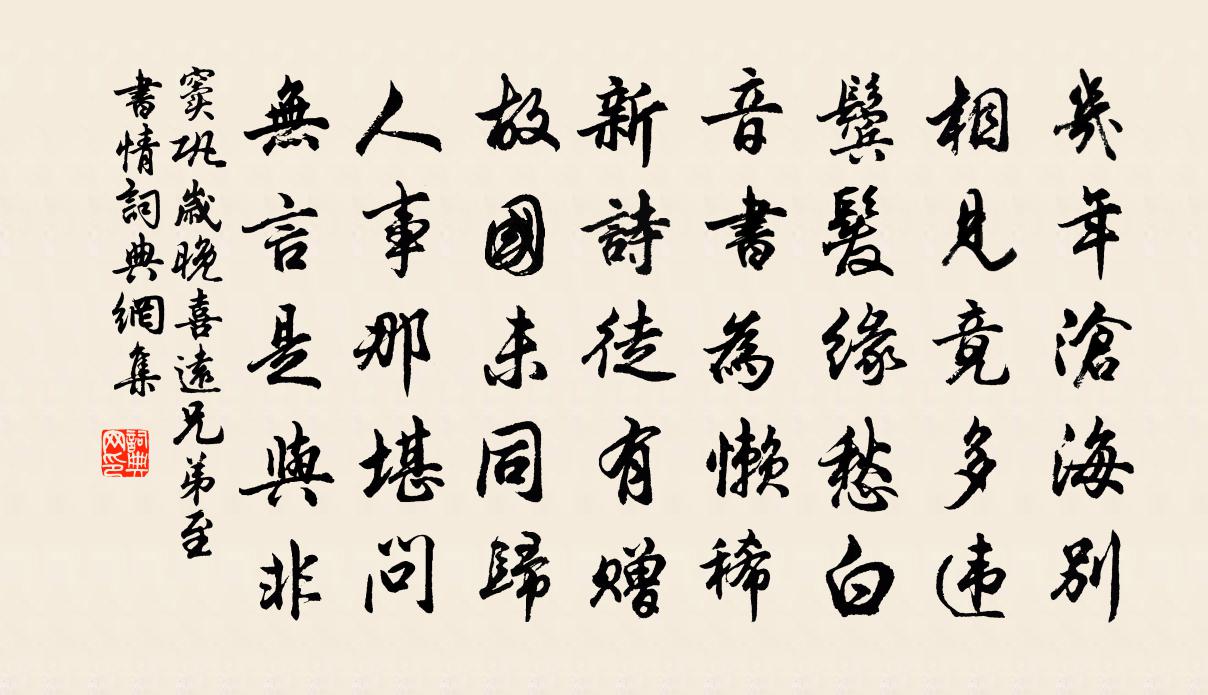 幾年滄海別
相見竟多違
鬢髮緣愁白
音書為懶稀
新詩徒有贈
故國未同歸
人事那堪問
無言是與非
竇鞏歲晚喜遠兄弟至
書情詞典網集
詞典
网